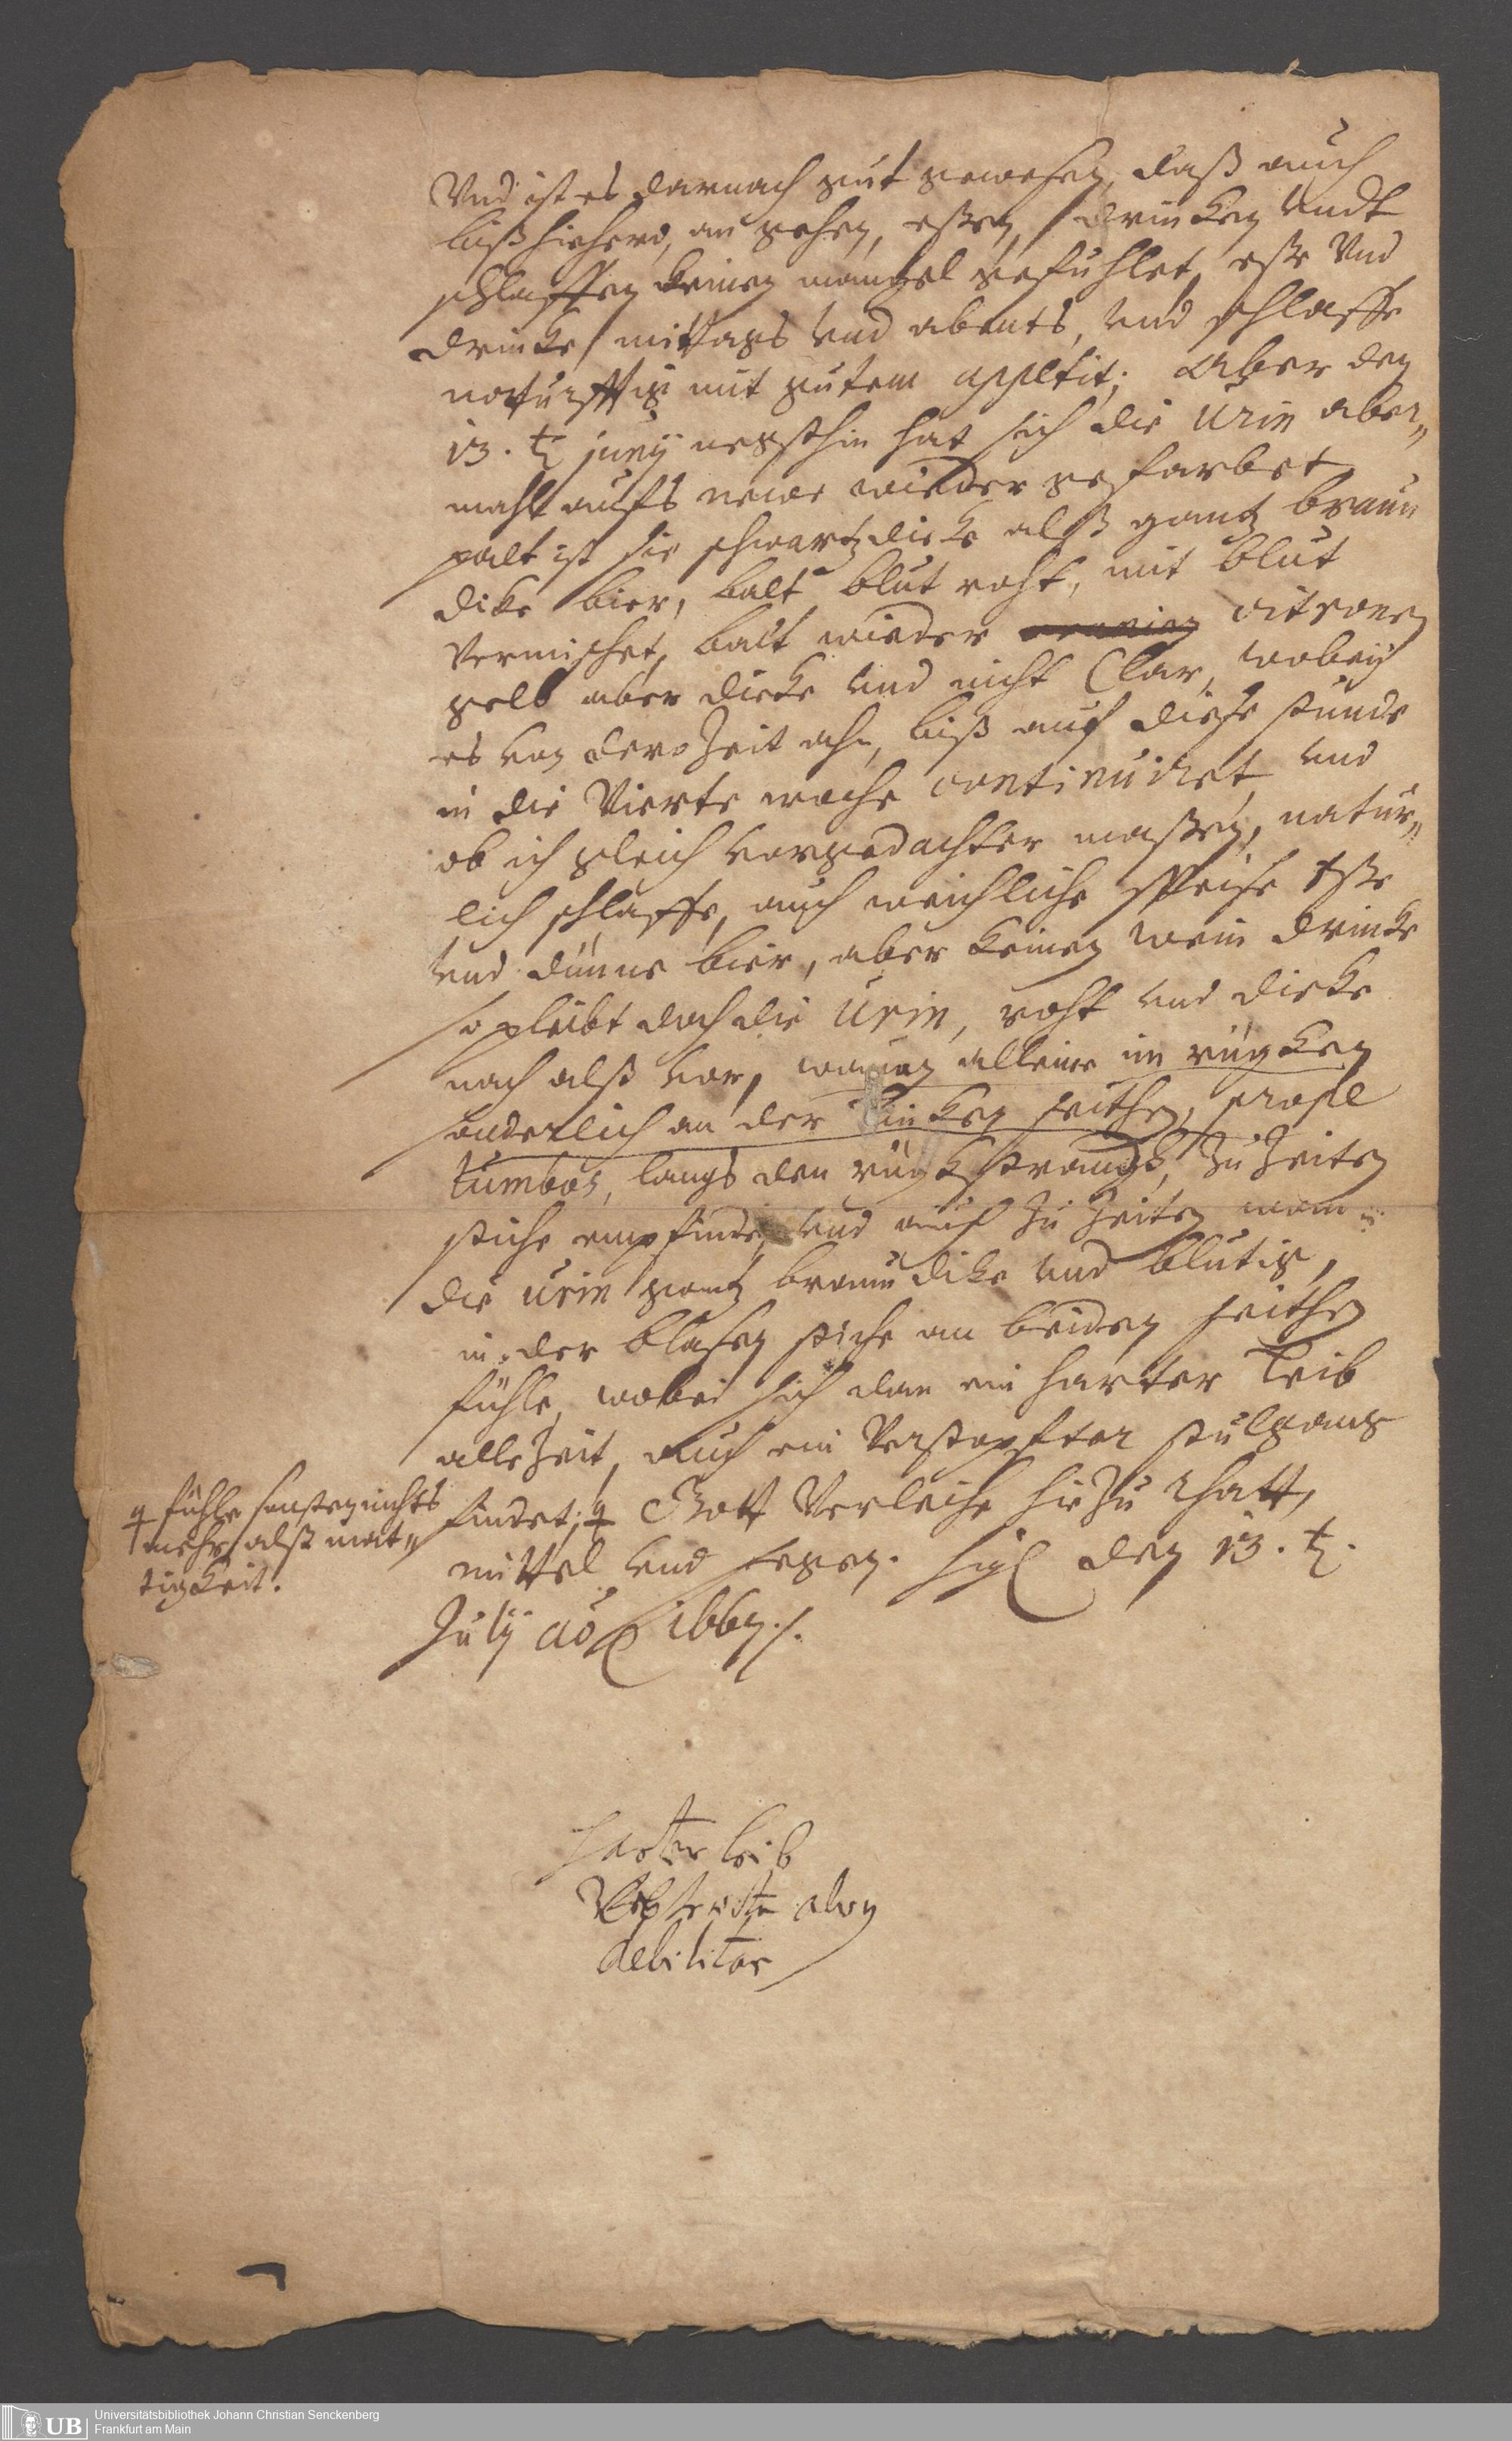 Vnd ist es darnach gut gewesen, daß auch
biß hiehero, an gehen, eßen, drincken undt
schlaffen keinen mangel gefühlet, eße Vnd
drincke mittags und abents, und schlaffe
noturfftig mit gutem appetit; Aber den
13. t. junij negsthin hat sich die Urin aber„
mahl aufs newe wieder gefarbet
palt ist sie schwartzdicke alß gantz braun
dike bier, balt blut roht, mit blut
Vermischet, balt wieder citronen
gelb aber dicke und nicht Clar, wobeÿ
es von dero Zeit ahn, biß auf diese stunde
in die Vierte woche continuiret, und
ob ich gleich vorgedachter maßen, natür„
lich schlaffe, auch weichliche Speise Eße
und dünne bier, aber keinen wein drincke
so pleibt doch die Urin, roht und dicke
nach alß vor, allein im rügken
sonderlich an der Lincken seithen,
Lumbos, langs den rügkstrange, Zu Zeiten
stiche empfinde, und auch Zu Zeiten wann
die urin gantz braun dike und blutig,
in der blasen stiche an beiden seithen
fühle, wobei sich dan ein harter Leib
alle Zeit, auch ein Verstopfter stulgang
findet; Gott Verleihe hiezu Rhatt,
mittel und segen. Sigl den 13. t.
Julij Ao 1667.
fühle sonsten nichts
mehr alß mat„
tigkeit.
harter leib
alvus
debilitas
Universitätsbibliothek Johann Christian Senckenberg
Frankfurt am Main
UB